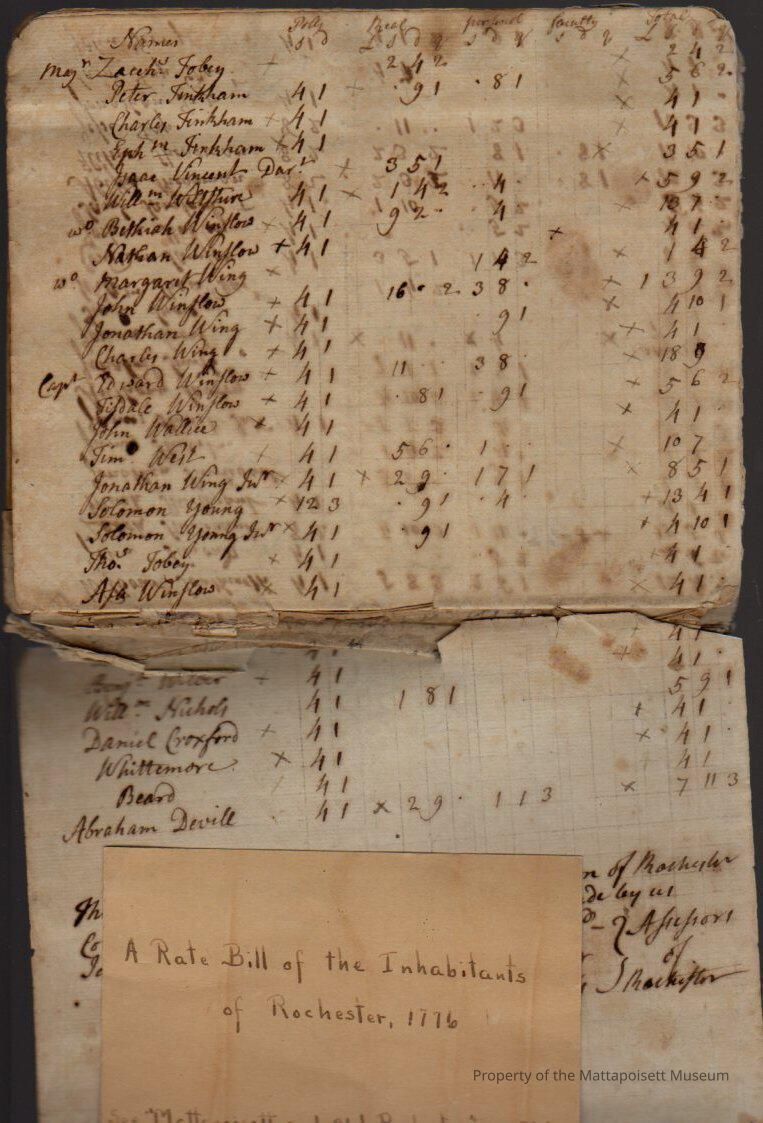 Names Polls Real personal faculty Total
s d £ s d q s d q s d q £ s d q
Majr Zacchs Tobey 2 4 2 2 4 2
Peter Tinkham 4 1 9 1 8 1 5 6 2
Charles Tinkham 4 1 4 1
Ephm Tinkham 4 1 4 1
Isaac Vincent Dart 3 5 1 3 5 1
Willm Wiltshire 4 1 1 4 2 4 5 9 2
wo Bethiah Winslow 4 1 9 2 4 13 7
Nathan Winslow 4 1 4 1
wo Margaret Wing 1 4 2 1 4 2
John Winslow 4 1 16 2 3 8 1 3 9 2
Jonathan Wing 4 1 9 1 4 10 1
Charles Wing 4 1 4 1
Capt Edward Winslow 4 1 11 3 8 18 9
Tisdale Winslow 4 1 8 1 9 1 5 6 2
John Wallis 4 1 4 1
Tim West 4 1 5 6 1 10 7
Jonathan Wing Junr 4 1 2 9 1 7 1 8 5 1
Solomon Young 12 3 9 1 4 13 4 1
Solomon Young Junr 4 1 9 1 4 10 1
Thos Tobey 4 1 4 1
Asa Winslow 4 1 4 1
4 1
4 1 4 1
Wilber 4 1 1 8 1 5 9 1
Willm Nichols 4 1 4 1
Daniel Croxford 4 1 4 1
Whittemore 4 1 4 1
Beard 4 1
Abraham Devill 4 1 2 9 1 1 3 7 11 3
n of Rochester
de by us
Assessors
of
Rochester
A Rate Bill of the Inhabitants
of Rochester, 1776
Property of the Mattapoisett Museum